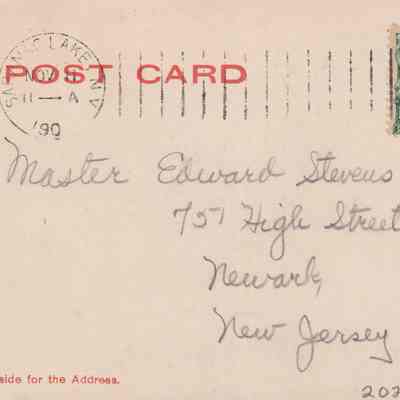 SARANAC LAKE, N.Y.
POST CARD
NOV 11
11 — A
190
Master Edward Stevens
757 High Street
Newark,
New Jersey
side for the Address.
202